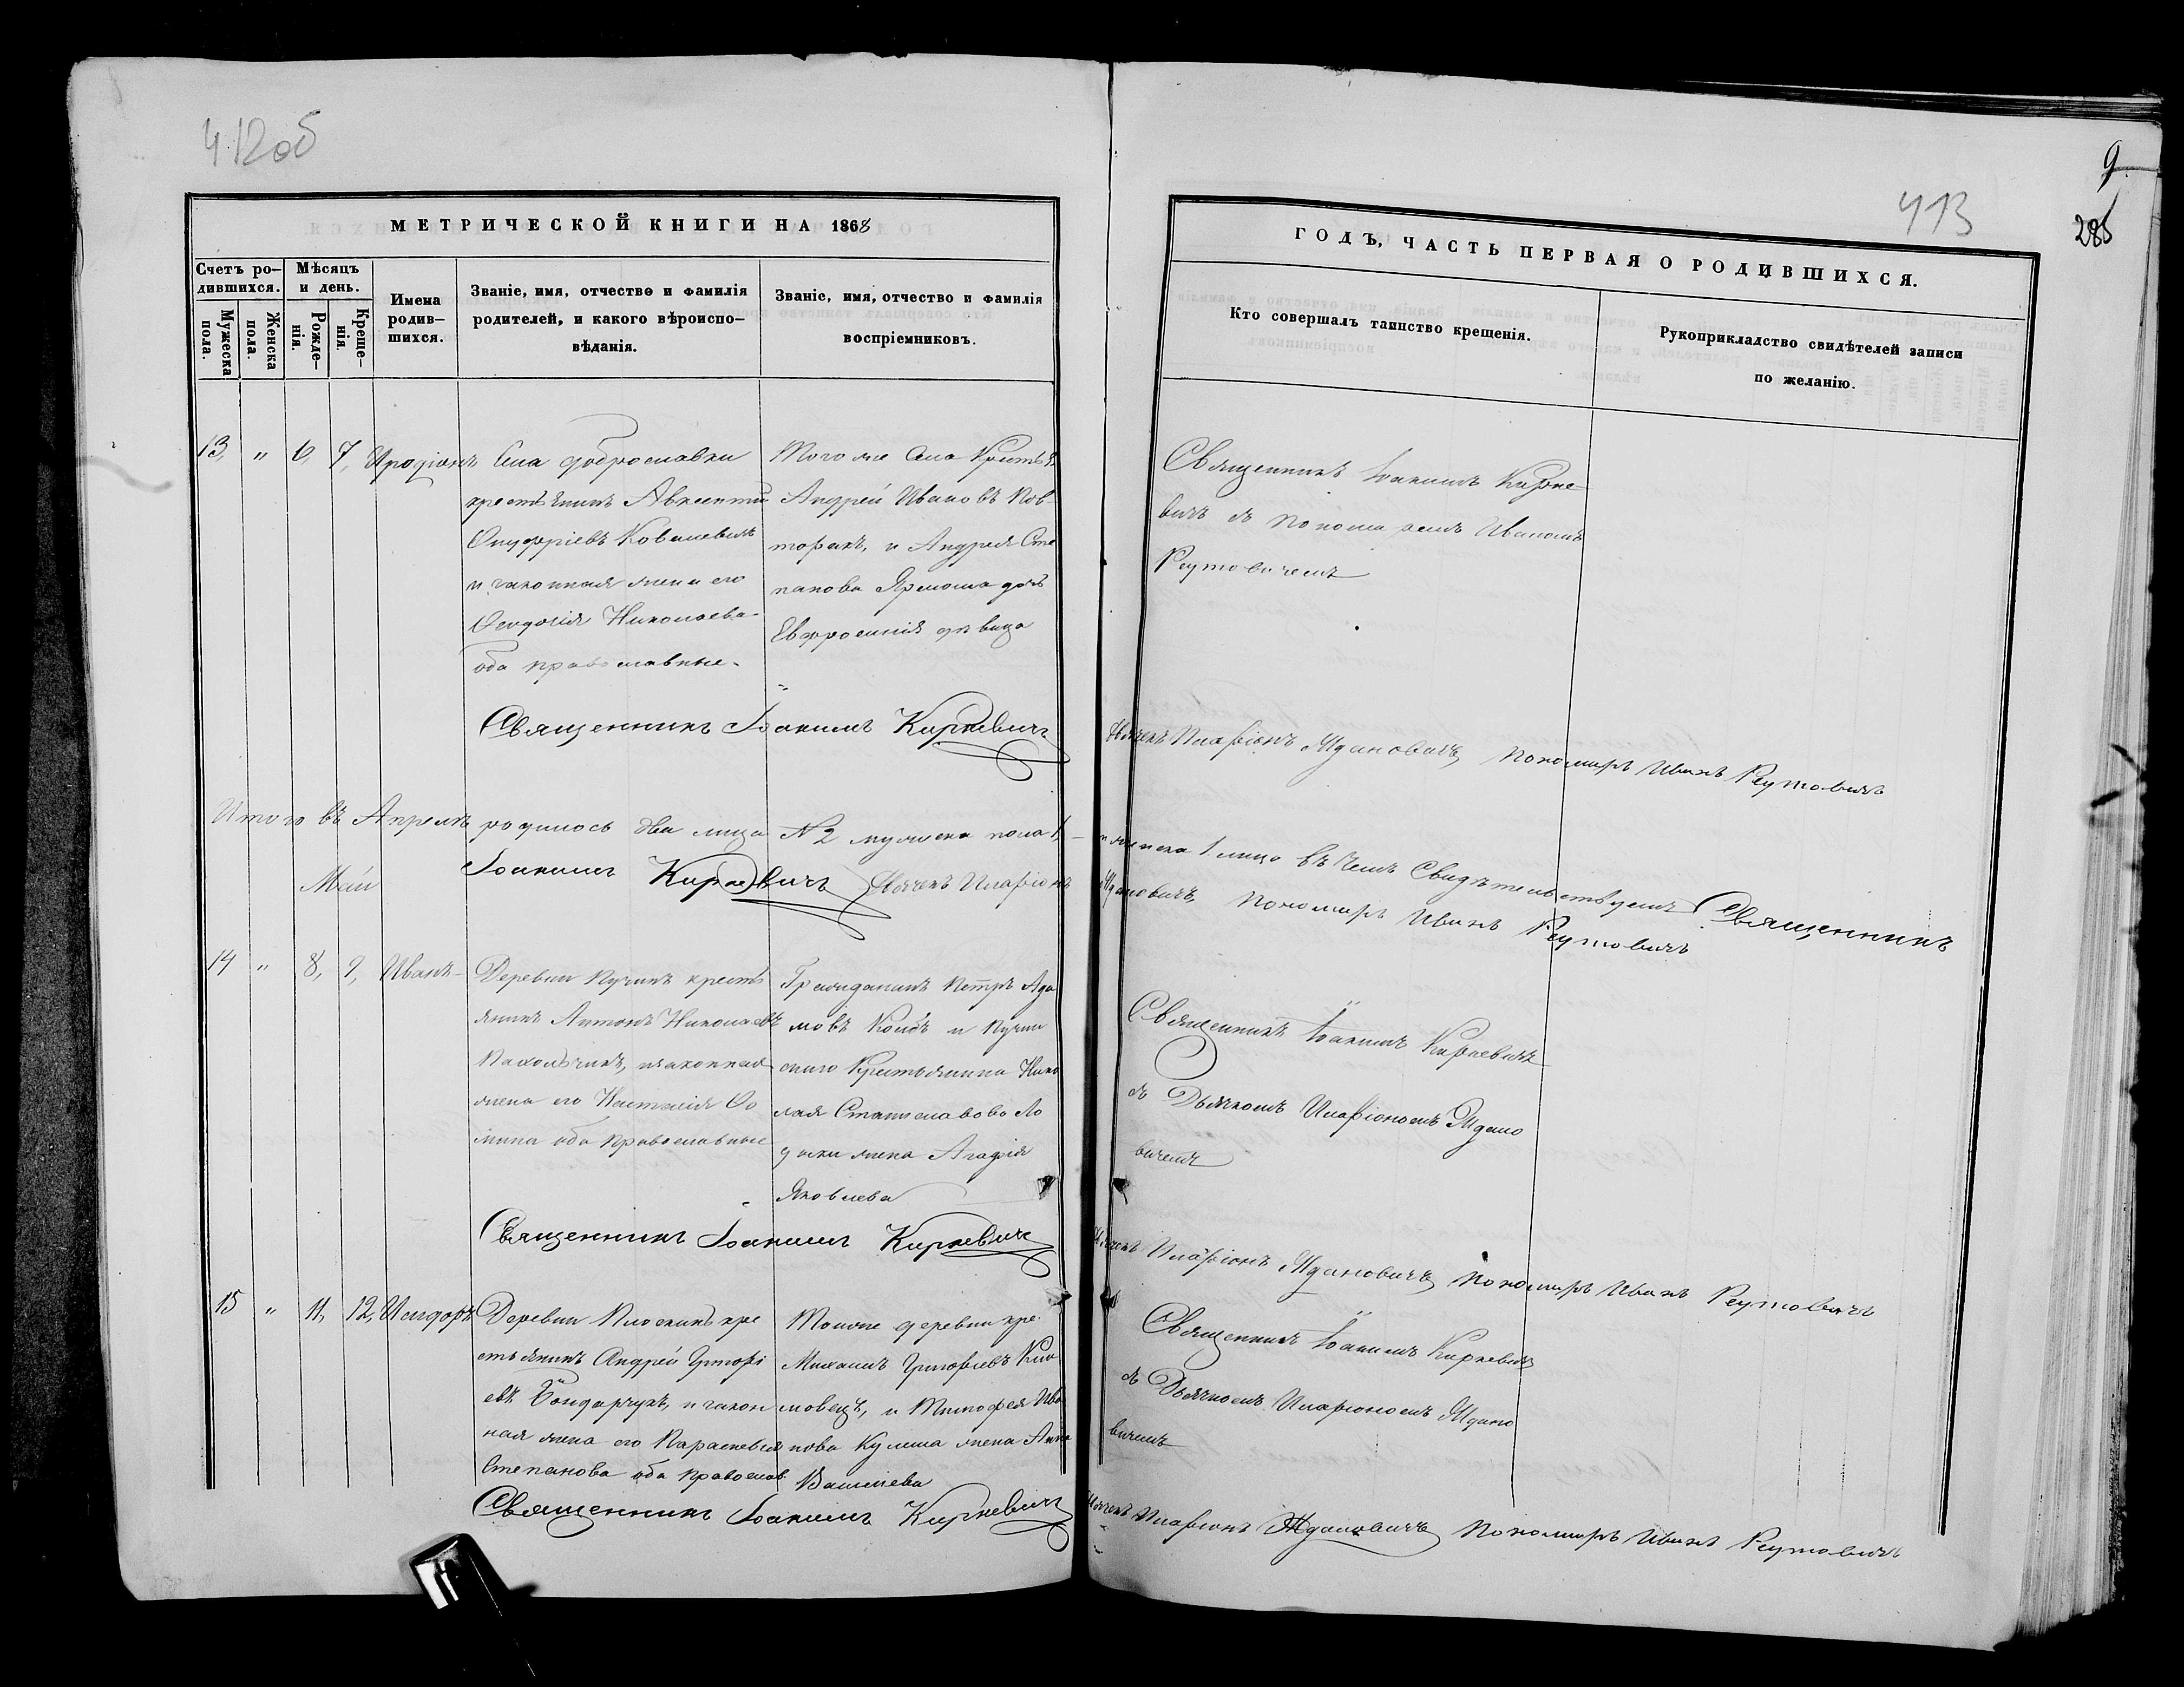 412об
МЕТРИЧЕСКОЙ КНИГИ НА 1868
Счетъ ро-
дившихся.
Мужеска
пола.
Женска
пола.
Мѣсяцъ
и день.
Рожде-
нія.
Креще-
нія.
Имена
родив-
шихся.
Званіе, имя, отчество и фамилія
родителей, и какого вѣроиспо-
вѣданія.
Званіе, имя, отчество и фамилія
воспріемниковъ.
13, " 6, 7, Иродіонъ
Села Доброславки
крестьянинъ Авксентій
Онуфріевъ Ковалевичъ
и законная жена его
Феодосія Николаева
оба православные.
Того же села
Андрей Ивановъ Пов-
торакъ, и Андрея Сте
панова Ярмоша дочь
Евфросинія дѣвица
Священникъ Іоакимъ Киркевичъ
Итого въ Апрелѣ родилось два лица N 2 мужеска пола 1,
Май
Іоакимъ Киркевичъ Дьячекъ Иларіонъ
14 " 8, 9, Иванъ
Деревни Пучинъ кресть
янинъ Антонъ Николаевъ
Пахольчикъ, и законная
жена его Настасія Фо
мина оба православные
Гражданинъ Петръ Ада
мовъ Колбъ и Пучин
скаго Крестьянина Нико
лая Станиславова Ло
дыки жена Агафія
Яковлева
Священникъ Іоакимъ Киркевичъ
15 " 11, 12, Исидоръ
Деревни Плоскинь кре
стьянинъ Андрей Григорі
евъ Бондарчукъ, и закон
ная жена его Параскевія
Степанова оба православ.
Тойже деревни кре.
Михаилъ Григорьевъ Кли
мовецъ, и Тимофея Ива
нова Кулеша жена Анна
Васильева
Священникъ Іоакимъ Киркевичъ
9
413
285
ГОДЪ, ЧАСТЬ ПЕРВАЯ О РОДИВШИХСЯ.
Кто совершалъ таинство крещенія.
Рукоприкладство свидѣтелей записи
по желанію.
Священникъ Іоакимъ Кирке
вичъ съ пономаремъ Иваномъ
Реутовичемъ
Дьячекъ Иларіонъ Ждановичъ, Пономарь Иванъ Реутовичъ
и женска 1 лицо въ чемъ Свидѣтельствуемъ Священникъ
Ждановичъ, Пономарь Иванъ Реутовичъ
Священникъ Іоакимъ Киркевичъ
съ Дьячкомъ Иларіономъ Ждано
вичемъ
Дьячекъ Иларіонъ Ждановичъ Пономарь Иванъ Реутовичъ
Священникъ Іоакимъ Киркевичъ
съ Дьячкомъ Иларіономъ Ждано
вичемъ
Дьячекъ Иларіонъ Ждановичъ Пономарь Иванъ Реутовичъ